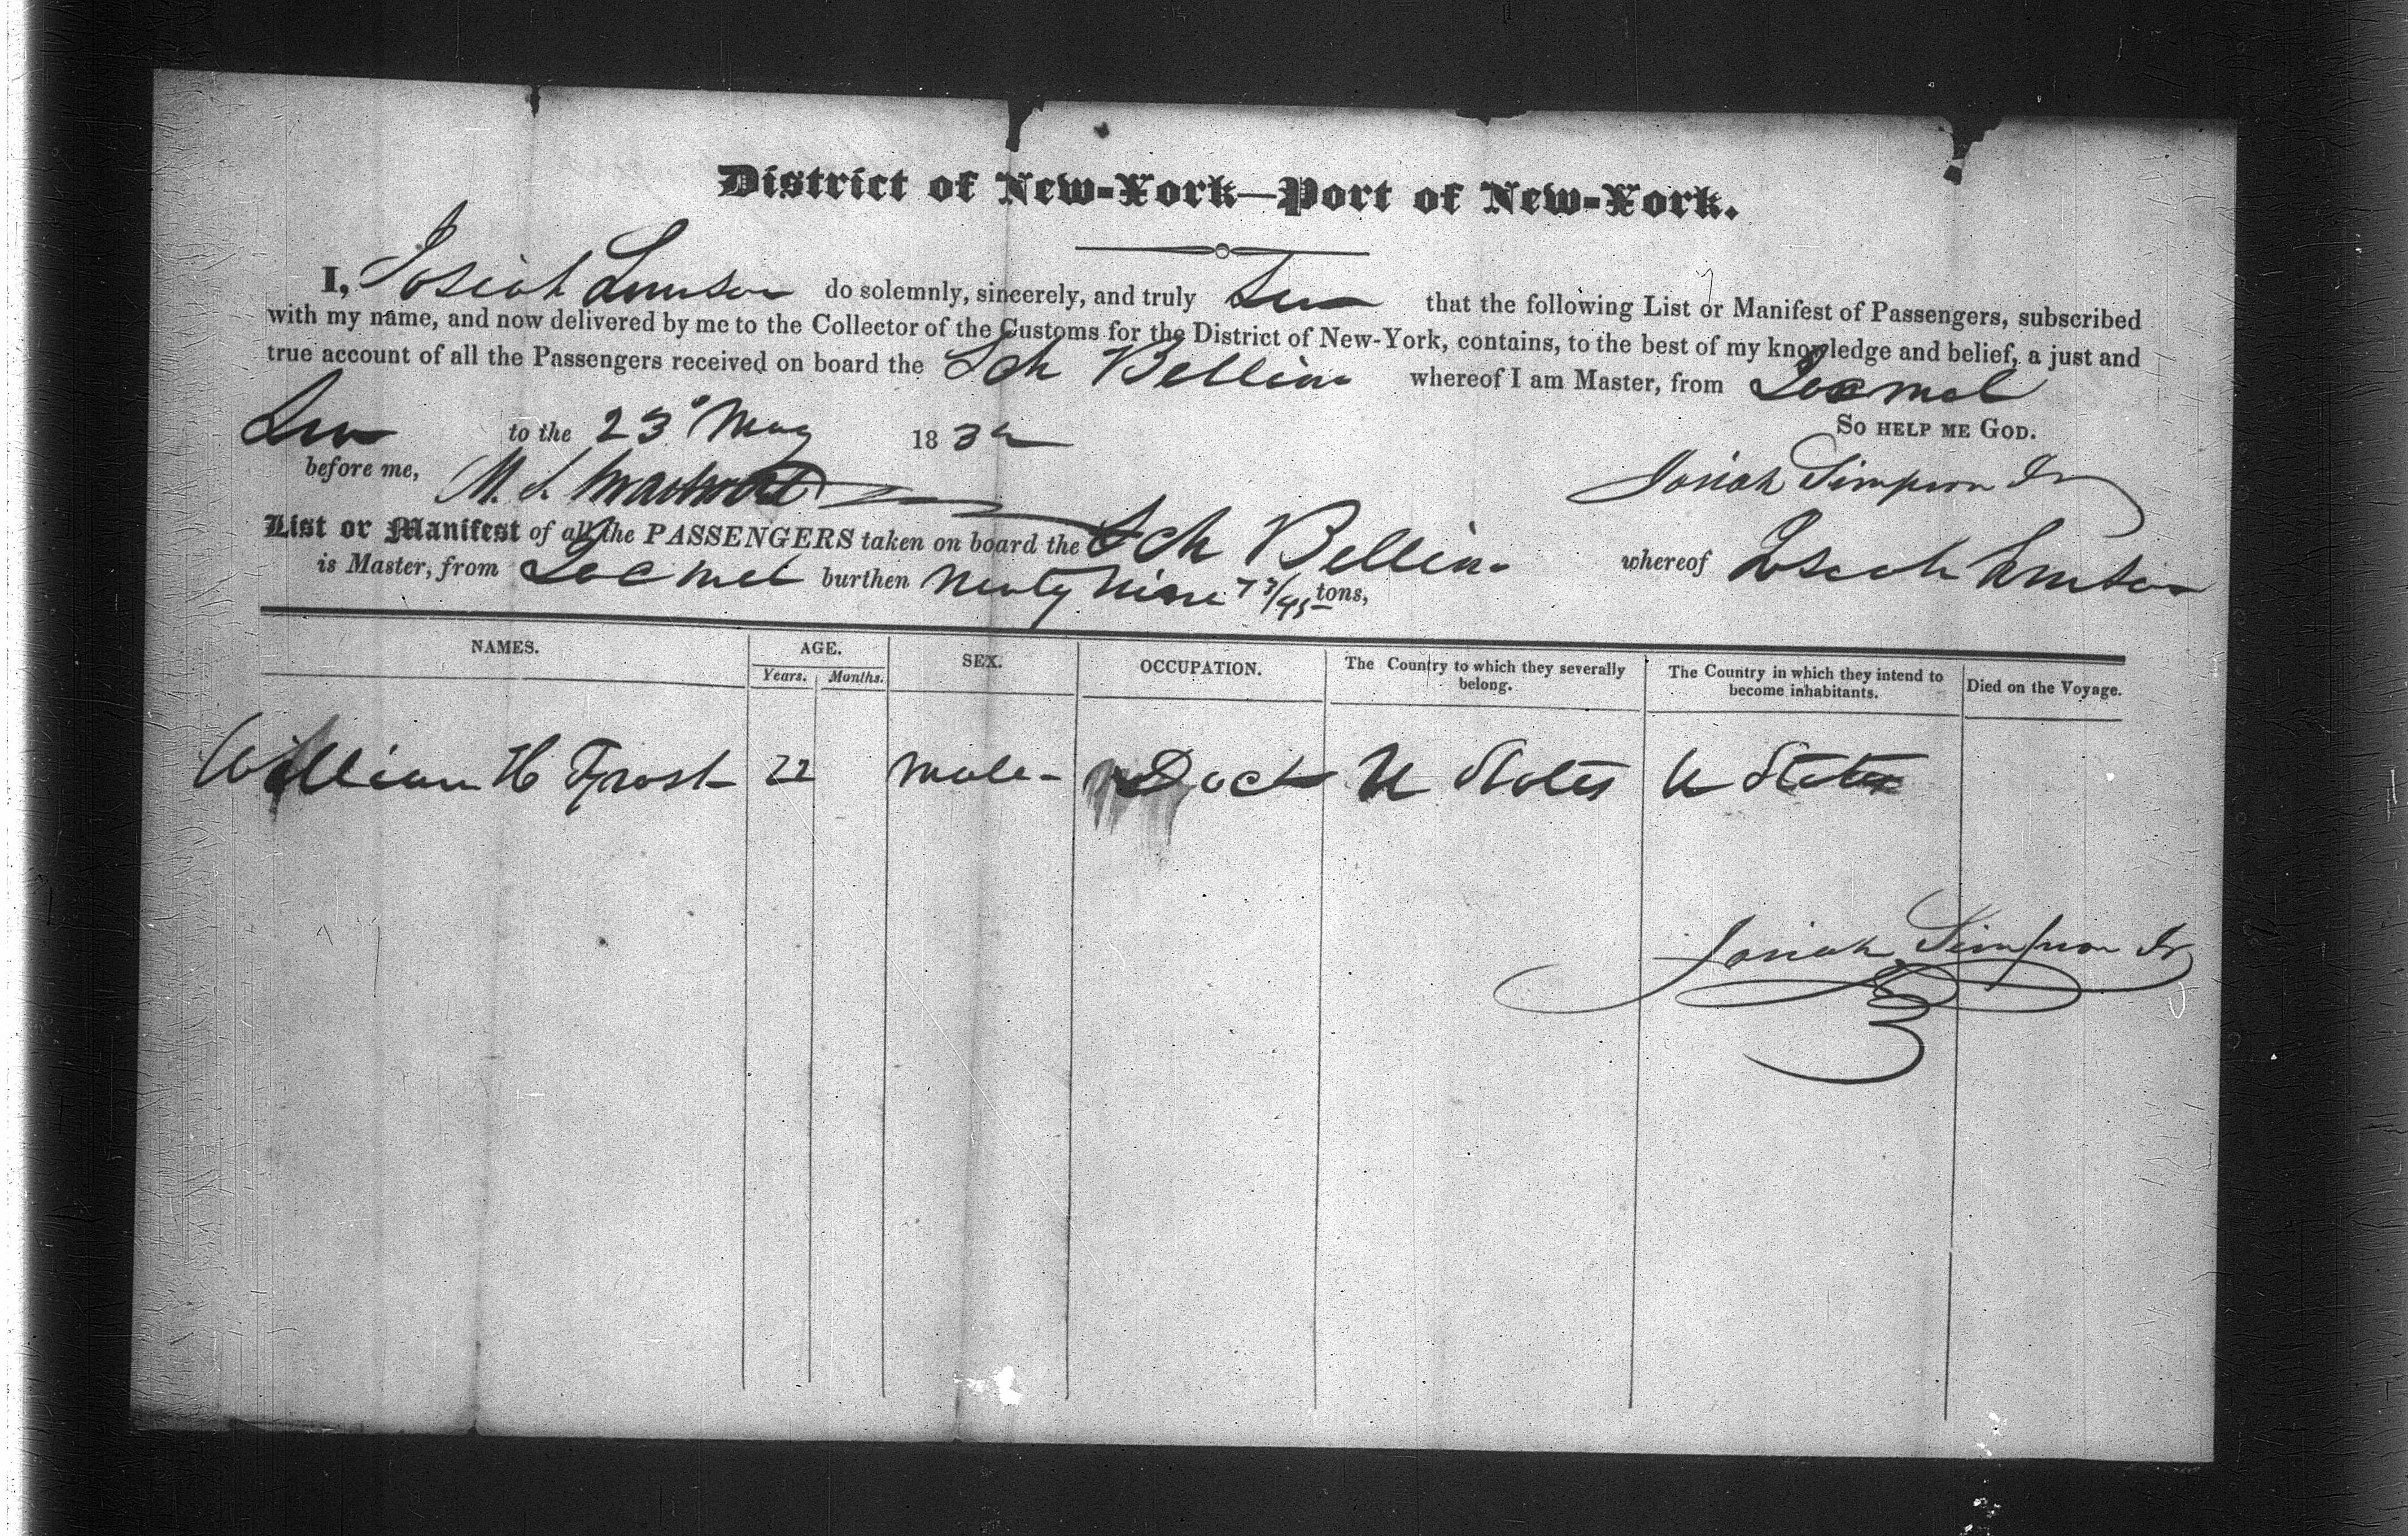 District of New-York—Port of New-York.
I, Josiah Simpson do solemnly, sincerely, and truly Swear that the following List or Manifest of Passengers, subscribed
with my name, and now delivered by me to the Collector of the Customs for the District of New-York, contains, to the best of my knowledge and belief, a just and
true account of all the Passengers received on board the Sch Bellina whereof I am Master, from Jacmel
to the 23d May 183 So HELP ME GOD.
before me, M. S. Josiah Simpson Jr
List or Manifest of all the PASSENGERS taken on board the Sch Bellina whereof Josiah Simpson
is Master, from Jacmel burthen Ninety Nine 73/95 tons,
NAMES. AGE. SEX. OCCUPATION. The Country to which they severally belong. The Country in which they intend to become inhabitants. Died on the Voyage.
Years. Months.
William H Frost 22 male Doct U States U States
Josiah Simpson Jr